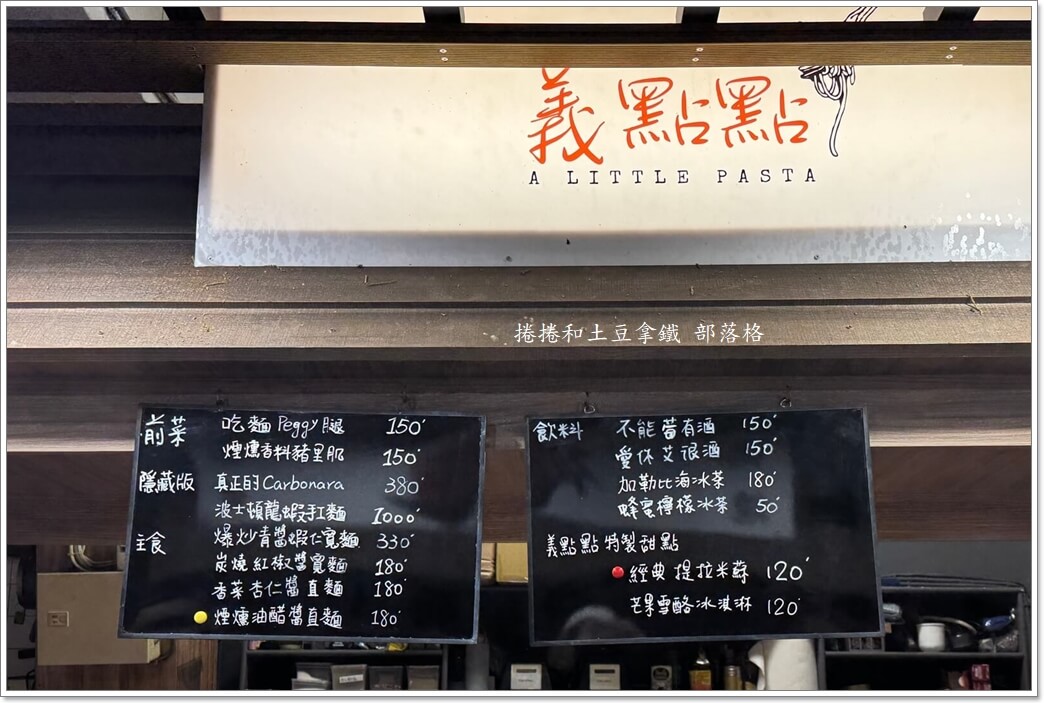 義點點
A LITTLE PASTA
捲捲和土豆拿鐵 部落格
前菜 吃麵 Peggy 腿 150
煙燻香料豬里肌 150
隱藏版 真正的 Carbonara 380
波士頓龍蝦手工麵 1000
主食 爆炒青醬蝦仁寬麵 330
炭燒紅椒醬寬麵 180
香菜杏仁醬直麵 180
煙燻油醋醬直麵 180
飲料 不能沒有酒 150
愛休艾很酒 150
加勒比海冰茶 180
蜂蜜檸檬冰茶 50
義點點特製甜點
經典提拉米蘇 120
芒果雪酪冰淇淋 120